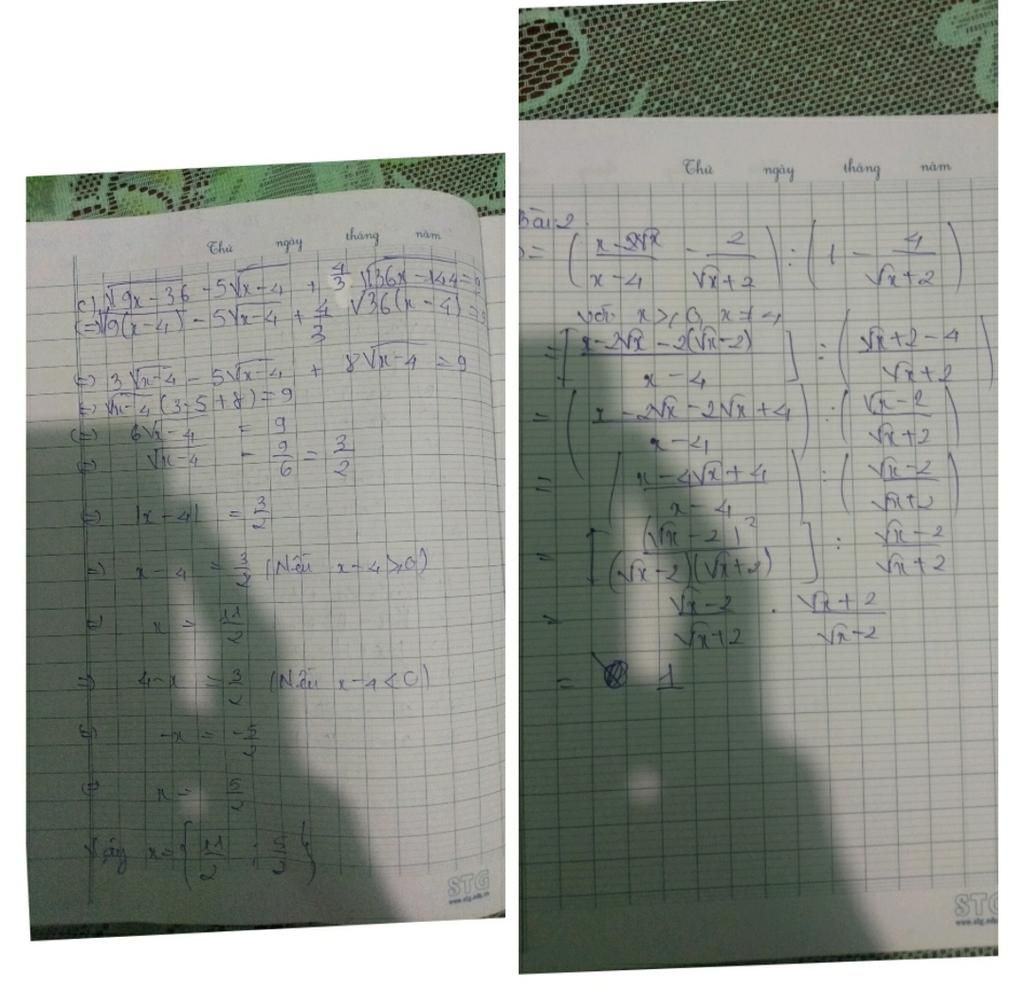 Thứ ngày tháng năm
c) √9x-36 - 5√x-4 + 4/3 √36x-144 = 9
(=) √9(x-4) - 5√x-4 + 4/3 √36(x-4) = 9
(=) 3√x-4 - 5√x-4 + 8√x-4 = 9
(=) √x-4 (3-5+8) = 9
(=) 6√x-4 = 9
(=) √x-4 = 9/6 = 3/2
(=) |x-4| = 3/2
(=) x-4 = 3/2 (Nếu x-4 ≥ 0)
(=) x = 11/2
(=) 4-x = 3/2 (Nếu x-4 < 0)
(=) -x = -5/2
(=) x = 5/2
Vậy x = { 11/2 ; 5/2 }
STG
www.stg.edu.vn
Thứ ngày tháng năm
Bài 2
= ( x-2√x / x-4 - 2 / √x+2 ) : ( 1 - 4 / √x+2 )
với x ≥ 0, x ≠ 4
= [ x-2√x-2(√x-2) / x-4 ] : ( √x+2-4 / √x+2 )
= ( x-2√x-2√x+4 / x-4 ) : ( √x-2 / √x+2 )
= ( x-4√x+4 / x-4 ) : ( √x-2 / √x+2 )
= [ (√x-2)² / (√x-2)(√x+2) ] : √x-2 / √x+2
= √x-2 / √x+2 . √x+2 / √x-2
= 1
STG